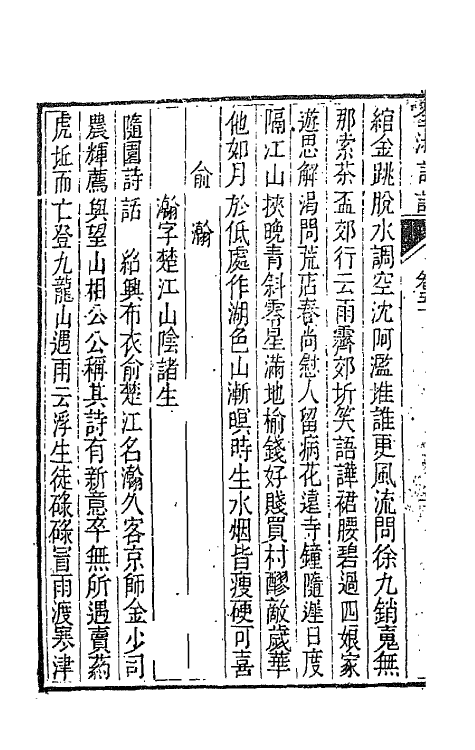 綰金跳脫水調空沈阿濫堆誰更風流問徐九銷䰟無
那索茶盃郊行云雨霽郊圻笑語譁裙腰碧過四娘家
遊思解渴問荒店春尚慰人留病花遠寺鐘隨遲日度
隔江山挾晚青斜零星滿地榆錢好賤買村醪敵歲華
他如月於低處作湖色山漸暝時生水烟皆瘦硬可喜
俞瀚
瀚字楚江山陰諸生
隨園詩話 紹興布衣俞楚江名瀚久客京師金少司
農輝薦與望山相公公稱其詩有新意卒無所遇賣葯
虎坵而亡登九龍山遇雨云浮生徒碌碌冒雨渡寒津